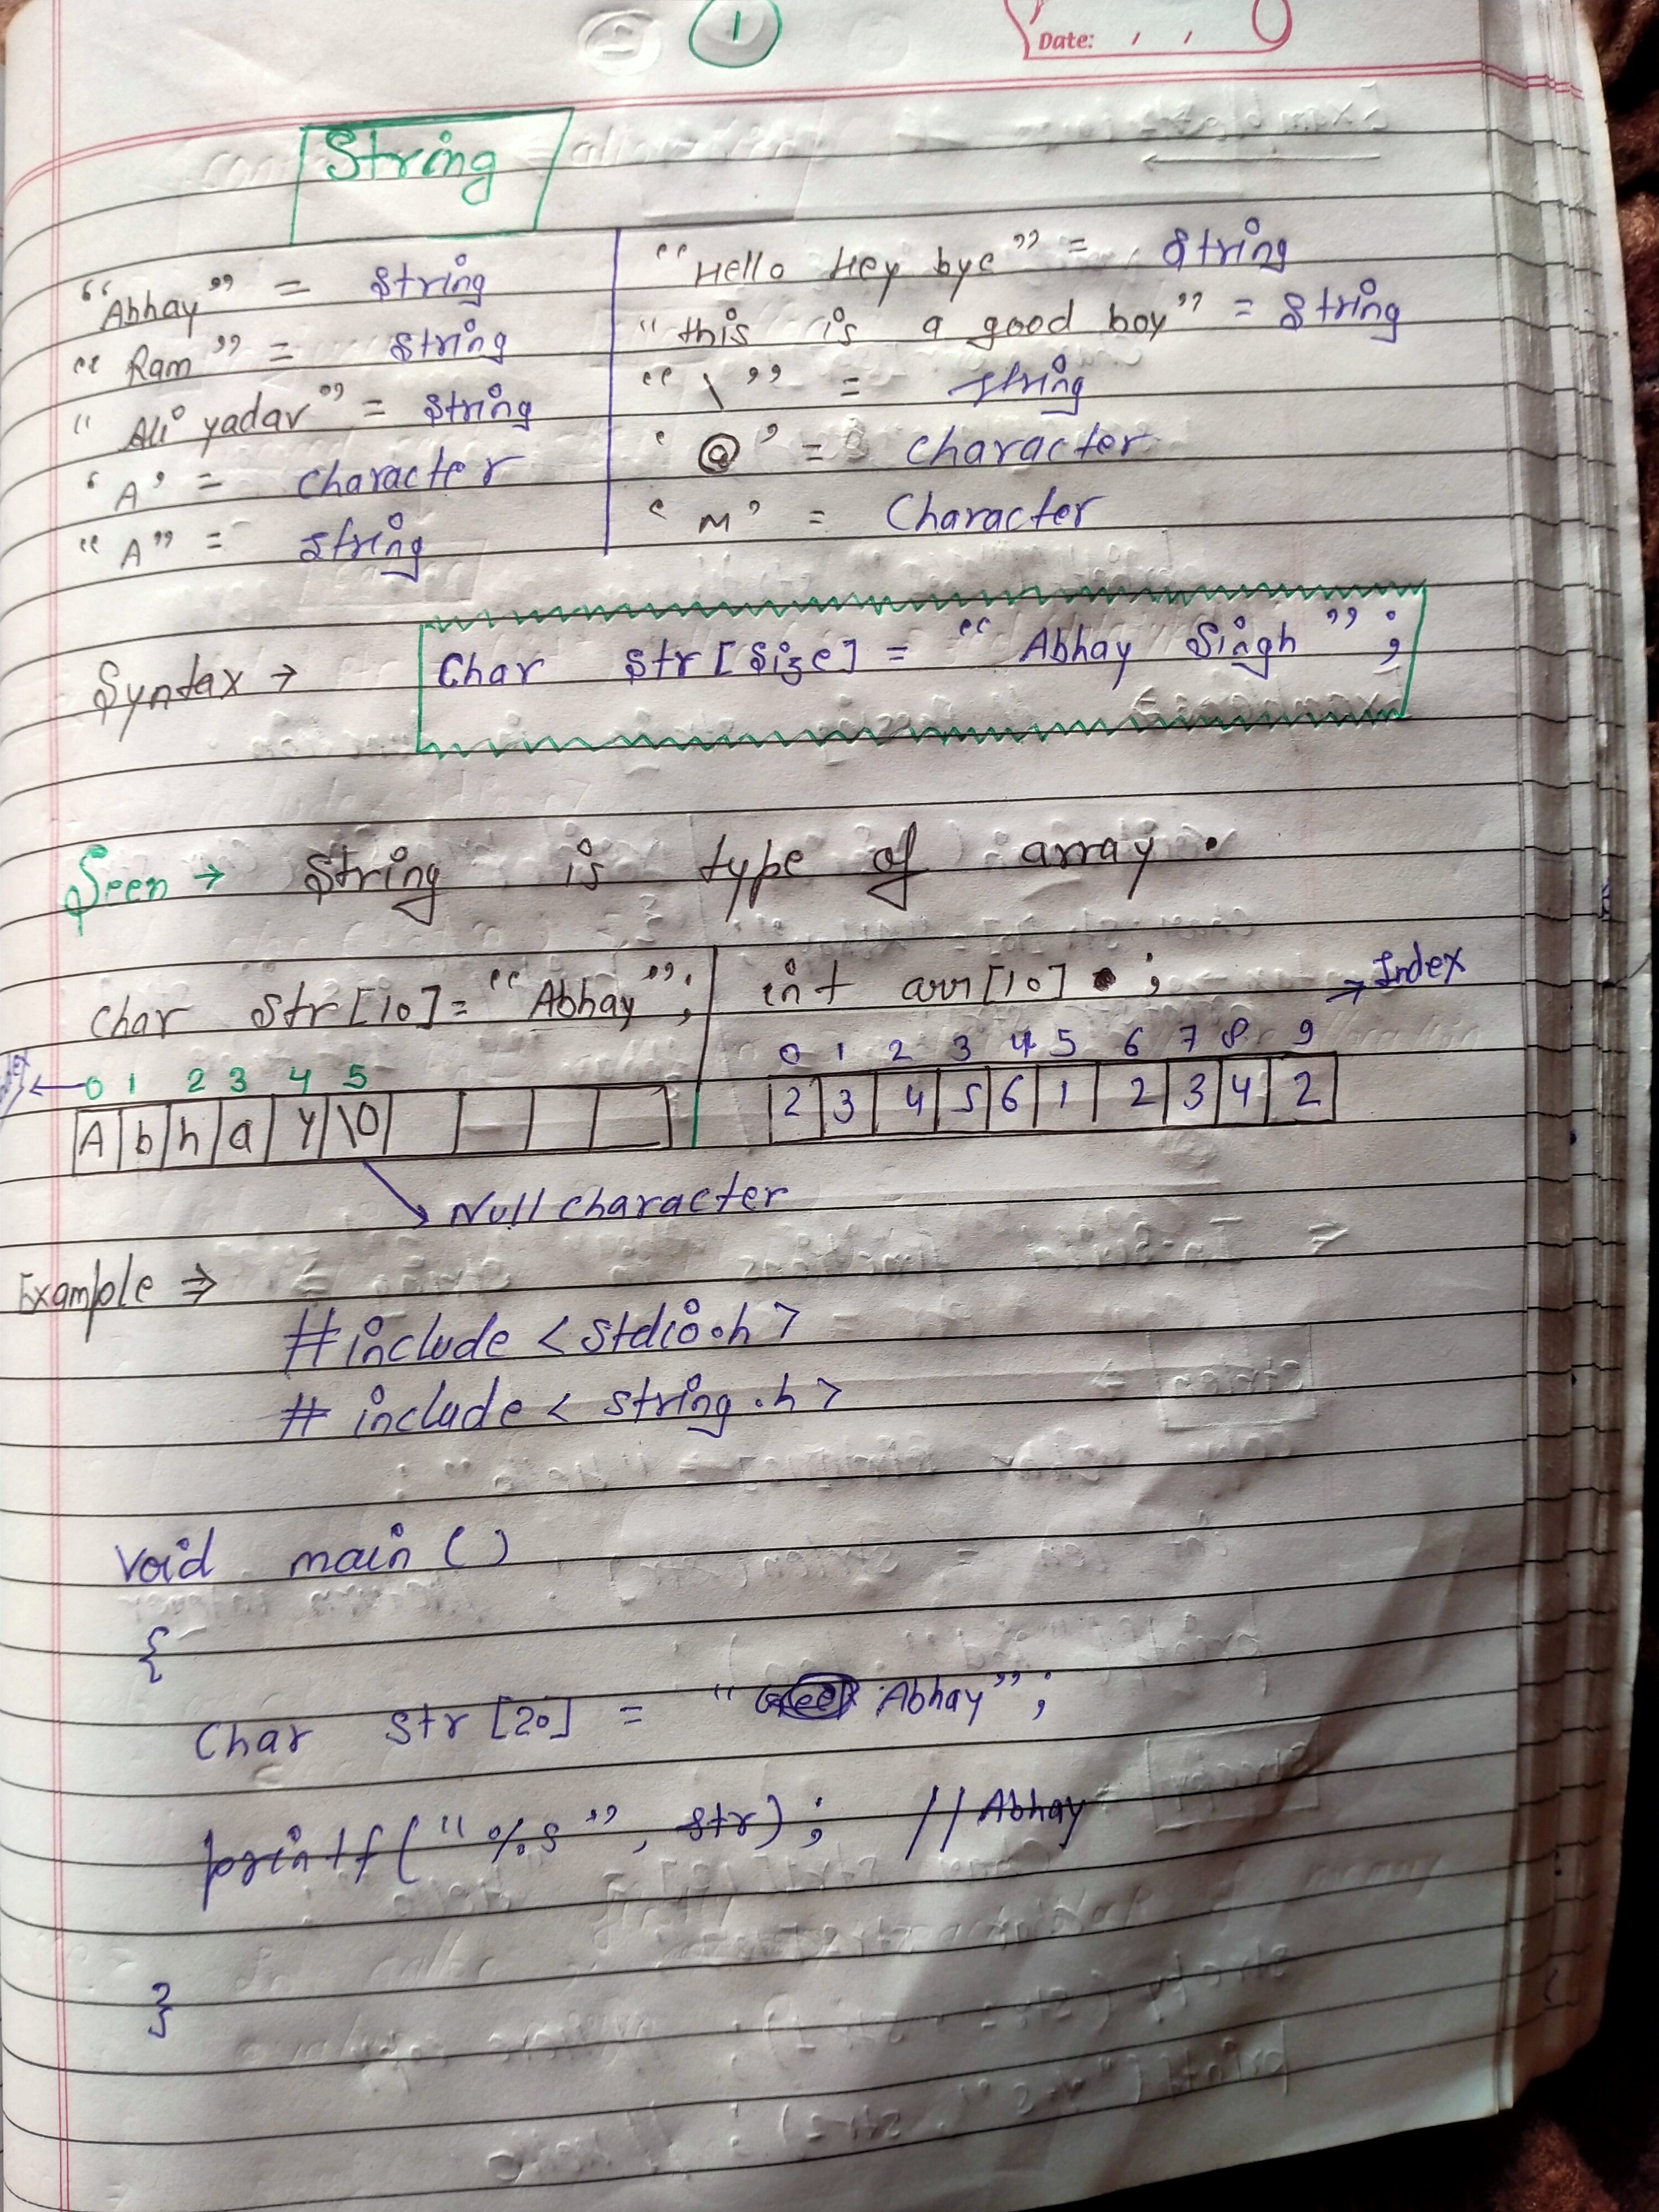 1
Date: / /
String
"Abhay" = String
"Ram" = String
"Ali yadav" = String
'A' = Character
"A" = String
"Hello Hey bye" = String
"this is a good boy" = String
"\" = String
'@' = Character
'M' = Character
Syntax → Char Str[Size] = "Abhay Singh";
Seen → String is type of array.
Char Str[10] = "Abhay";
0 1 2 3 4 5
A b h a y \0
Null character
int arr[10] ;
→ Index
0 1 2 3 4 5 6 7 8 9
2 3 4 5 6 1 2 3 4 2
Example ⇒
#include <stdio.h>
# include < string.h>
Void main ()
{
Char Str [20] = "Abhay";
printf("%s", Str); //Abhay
}